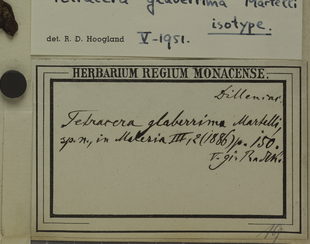 Tetracera glaberrima Martelli
isotype.
det. R. D. Hoogland V-1951.
HERBARIUM REGIUM MONACENSE.
Dilleniac.
Tetracera glaberrima Martelli,
sp. n., in Malesia III, (1886) p. 150.
19